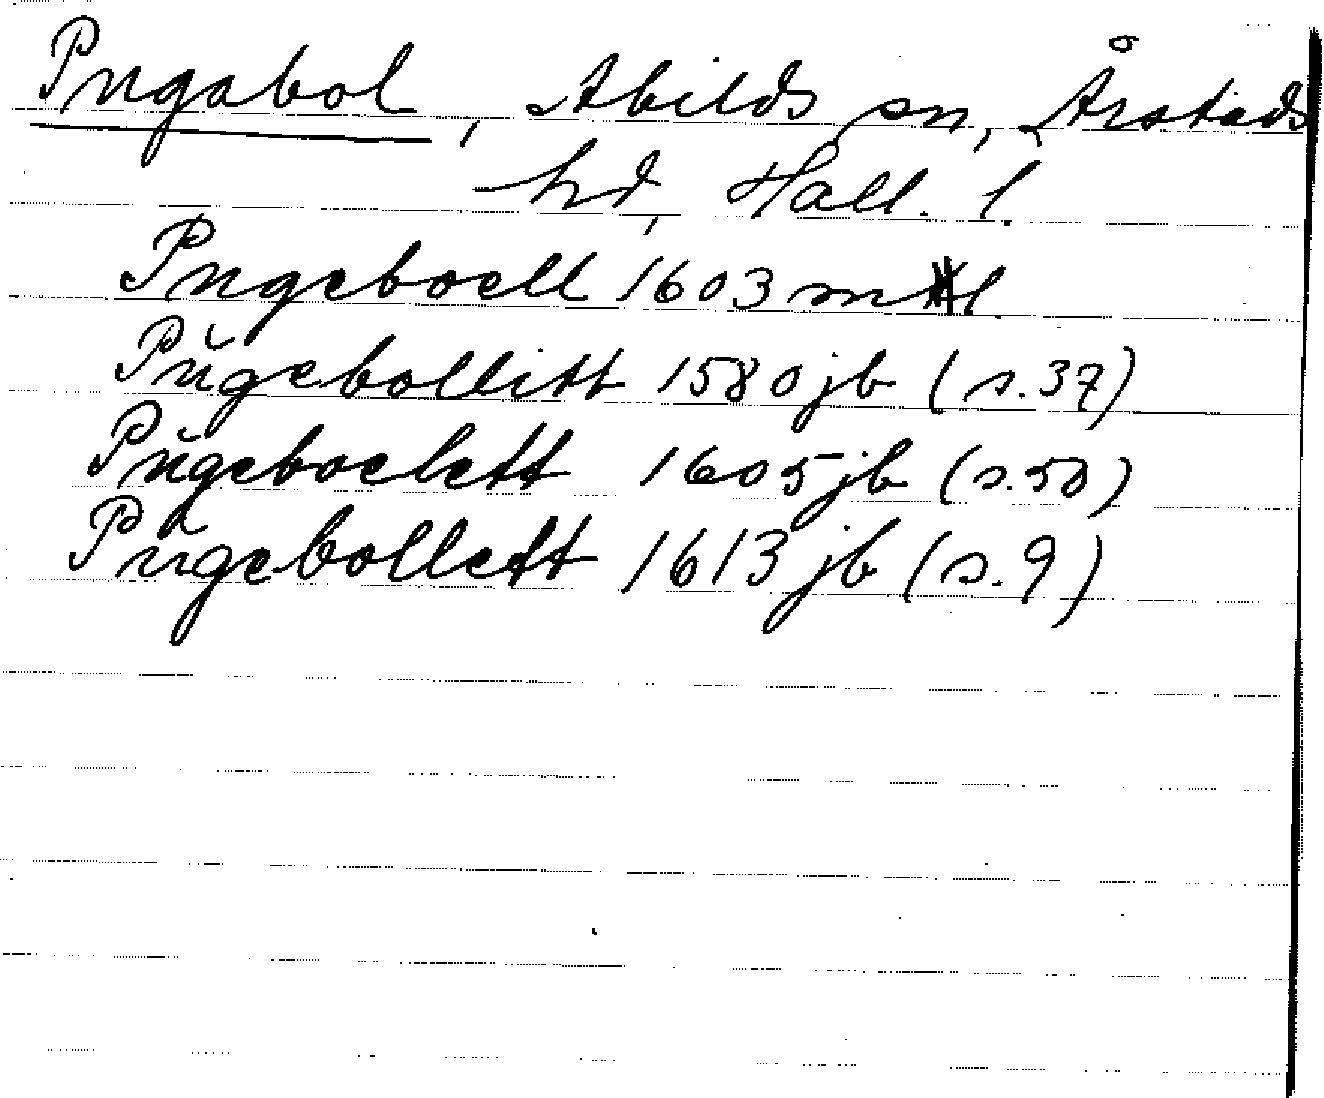 Pugabol, Abilds sn, Årstads
hd, Hall. l.
Pugeboell 1603 mtl
Pŭgebollitt 1580 jb (s.37)
Pŭgeboelett 1605 jb (s.50)
Pŭgebollett 1613 jb (s.9)